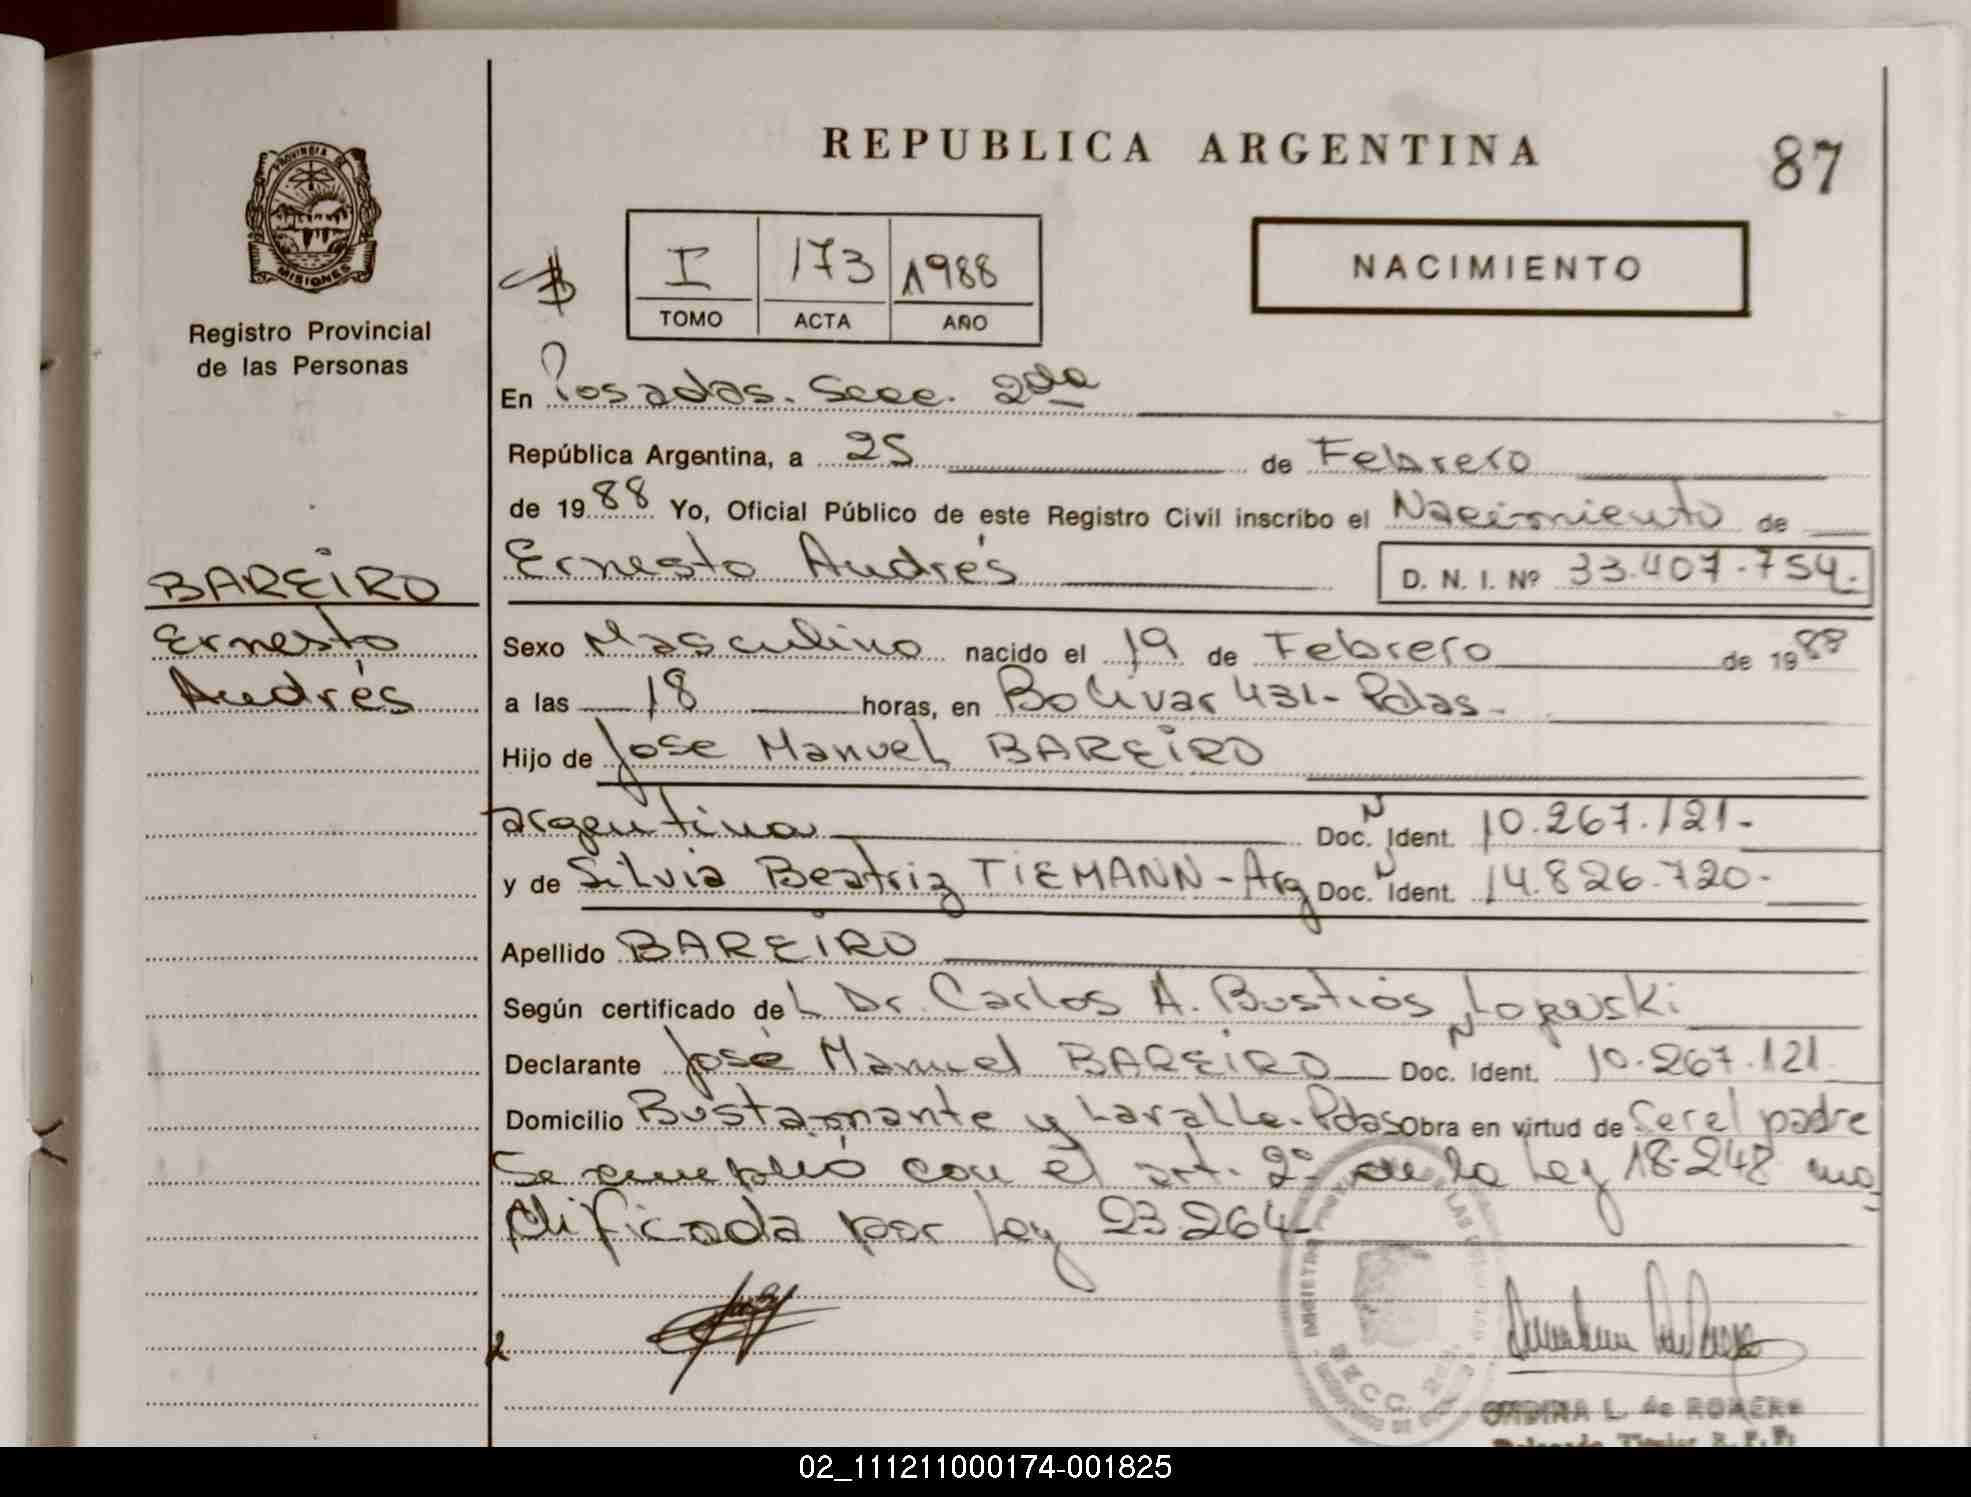 REPUBLICA ARGENTINA
87
PROVINCIA DE
MISIONES
Registro Provincial
de las Personas
I 173 1988
TOMO ACTA AÑO
NACIMIENTO
En Posadas. Secc. 2da
República Argentina, a 25 de Febrero
de 1988 Yo, Oficial Público de este Registro Civil inscribo el Nacimiento de
Ernesto Andrés D. N. I. Nº 33.407.754.
BAREIRO
Ernesto
Andrés
Sexo Masculino nacido el 19 de Febrero de 1988
a las 18 horas, en Bolivar 431- Pdas.
Hijo de Jose Manuel BAREIRO
argentina Doc. N Ident. 10.267.121-
y de Silvia Beatriz TIEMANN - Arg Doc. N Ident. 14.826.720-
Apellido BAREIRO
Según certificado del Dr. Carlos A. Bustios
Declarante José Manuel BAREIRO Doc. N Ident. 10.267.121
Domicilio Bustamante y Lavalle. Pdas Obra en virtud de Ser el padre
Se cumplió con el art. 2º de la Ley 18.248 mo_
dificada por Ley 23.264-
L. de ROMERO
02_111211000174-001825